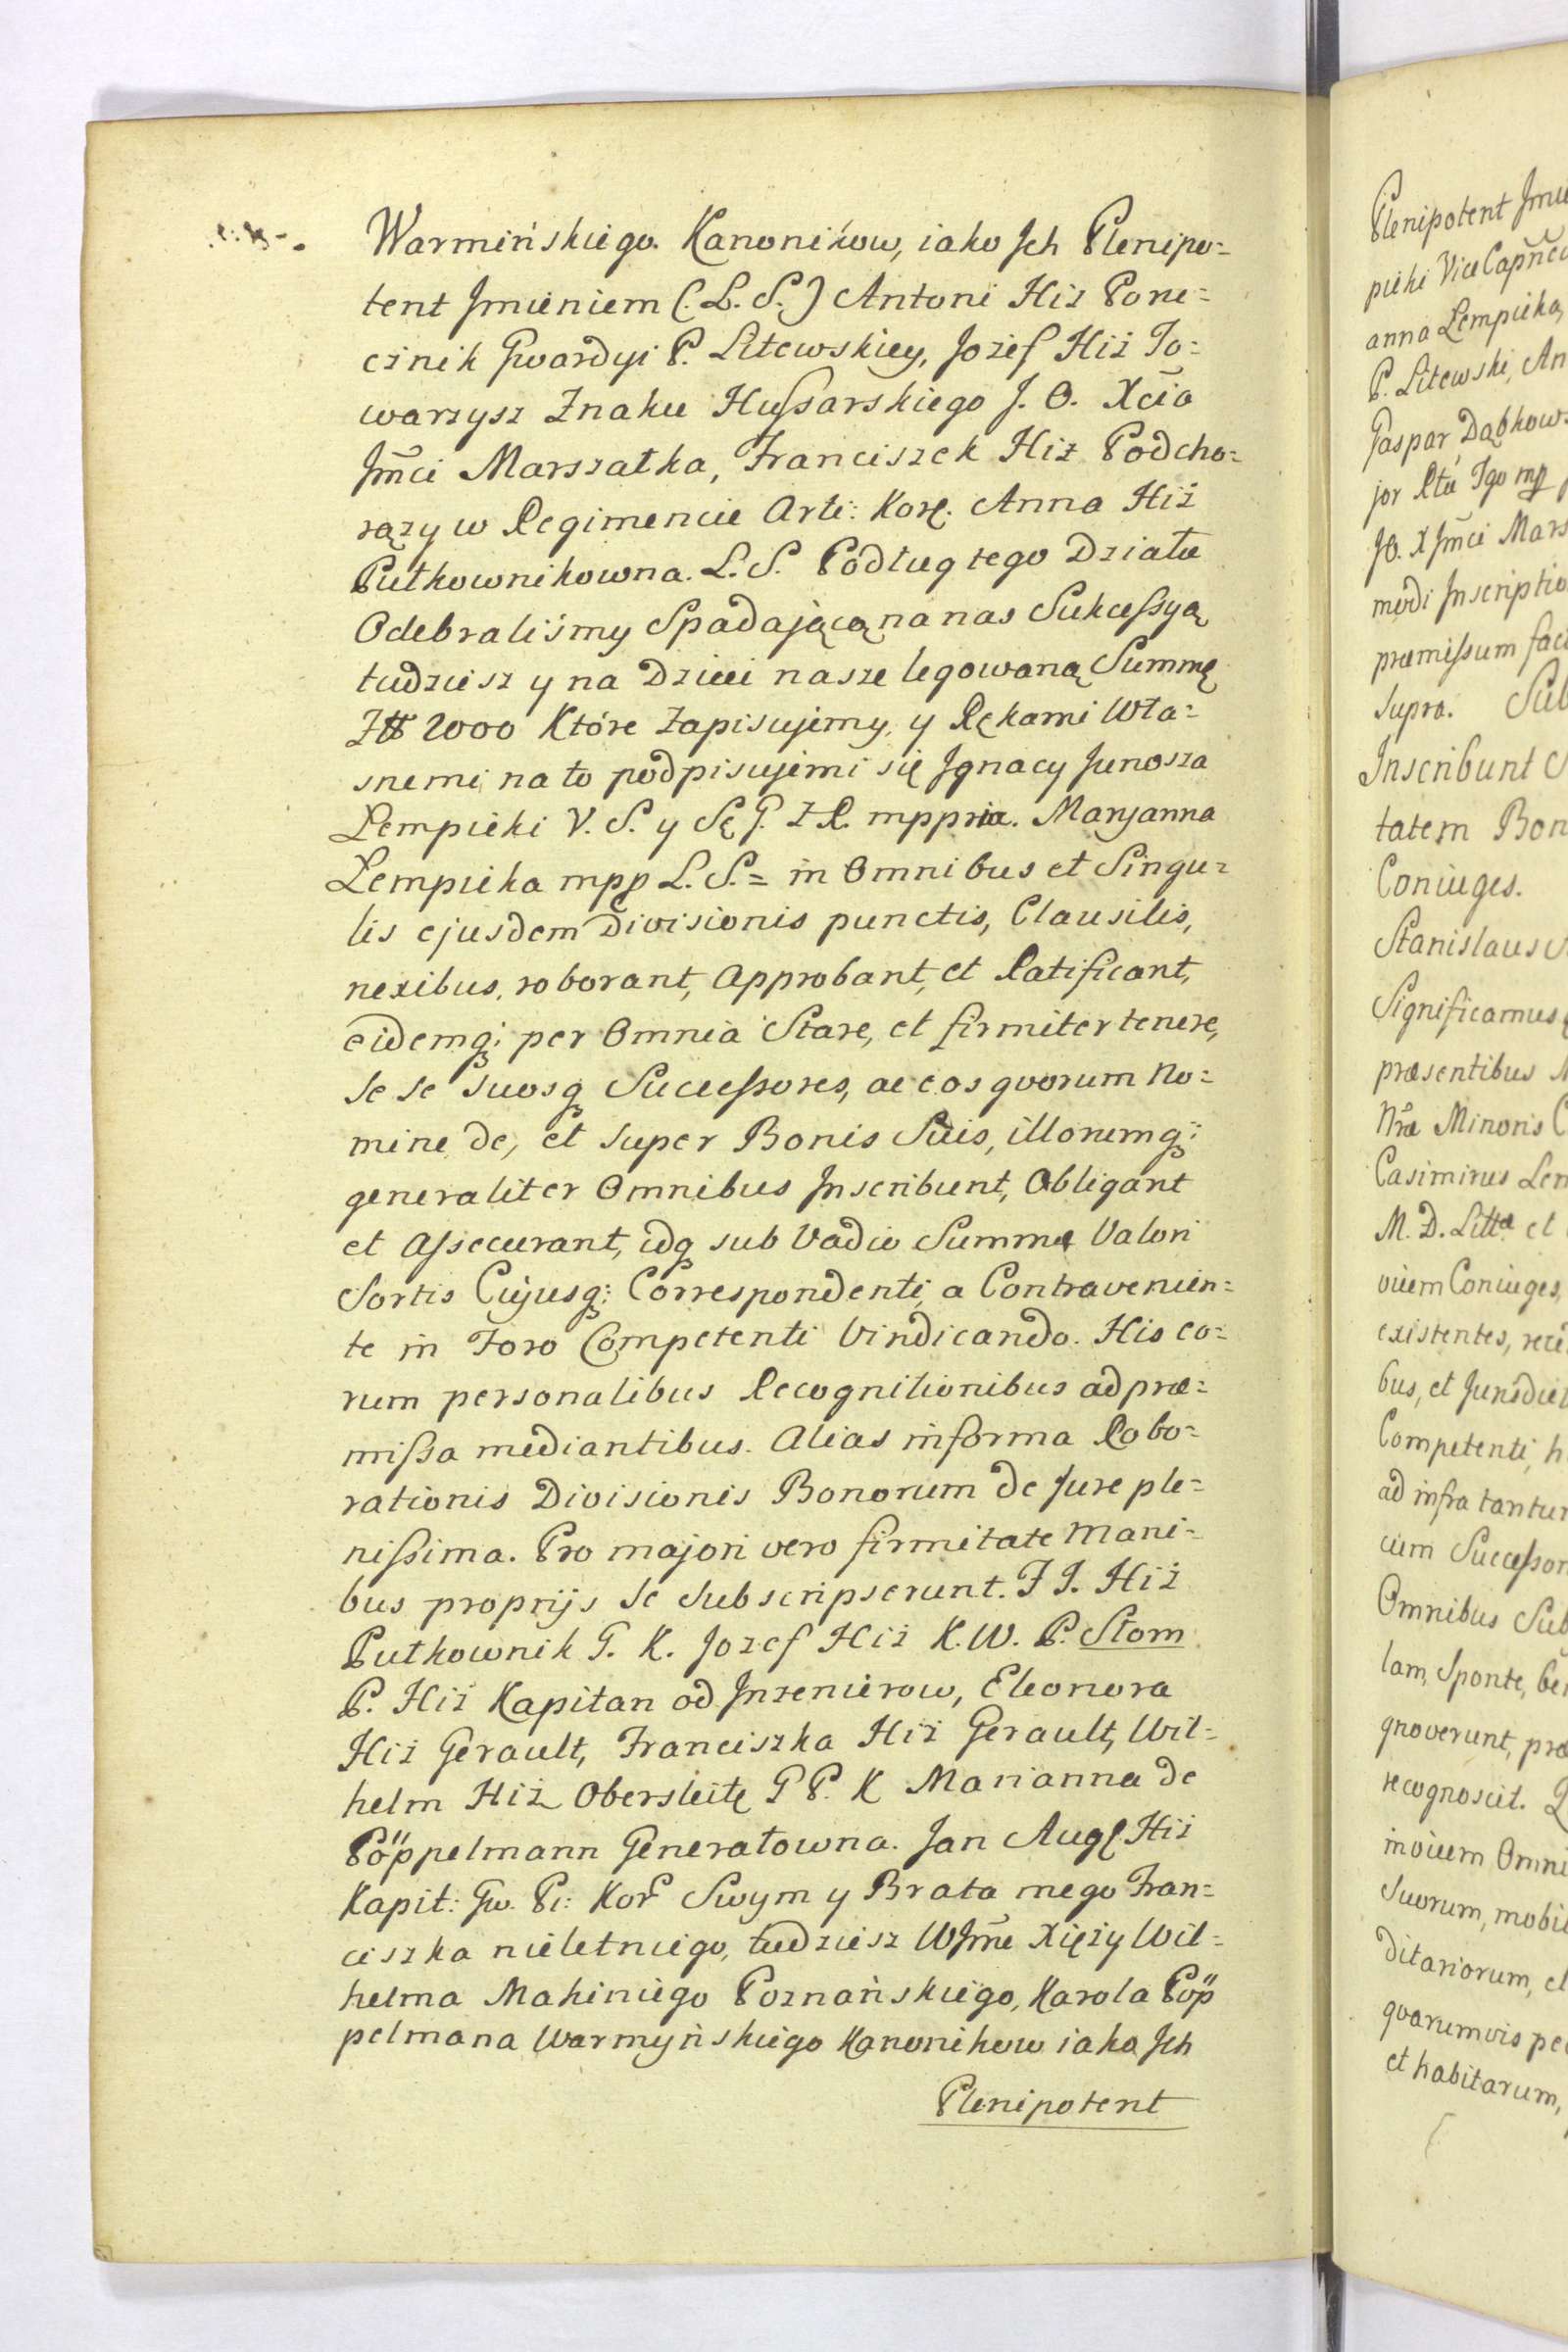 Warmińskiego. Kanoników, iako Jch Plenipo=
tent Jmieniem (. L. S.) Antoni Hiż Poru=
cznik Gwardyi P. Litewskiey, Jozef Hiż To=
warzysz Znaku Hussarskiego J. O. Xcia
Jm̃ci Marszałka, Franciszek Hiż Podcho=
rązy w Regimencie Arti: Kor. Anna Hiż
Pułkownikowna. L. S. Podług tego Działu
Odebraliśmy Spadającą na nas Sukcessyą
tudziesz y na Dzieci nasze legowaną Summę
2000 Które Zapisujemy, y Rękami Wła=
snemi na to podpisujemi się Jgnacy Junosza
Łempicki V. S. y S G. Z R. mppria. Maryanna
Łempicka mpp L. S. = in Omnibus et Singu=
lis ejusdem Divisionis punctis, Clausilis,
nexibus, roborant, Approbant, et Ratificant,
eidemq; per Omnia Stare, et firmiter tenere,
se se suosq Successores, ac eos qvorum No=
mine de, et super Bonis Suis, illorumq;
generaliter Omnibus Jnscribunt, Obligant
et Assecurant, idq sub Vadio Summæ Valori
Sortis Cujusq; Correspondenti, a Contravenien=
te in Foro Competenti Vindicando. His eo=
rum personalibus Recognitionibus ad præ=
missa mediantibus. Alias in forma Robo=
rationis Divisionis Bonorum de Jure ple=
nissima. Pro majori vero firmitate Mani=
bus proprijs se subscripserunt. F J. Hiż
Pułkownik G. K. Jozef Hiż K. W. P. Stom
P. Hiż Kapitan od Jnzenierow, Eleonora
Hiż Gerault, Franciszka Hiż Gerault, Wil=
helm Hiż Obersleit G P. K Marianna de
Pöppelmann Generałowna. Jan Aug. Hiż
Kapit: Gw. Pi: Kor Swym y Brata mego Fran=
ciszka nieletniego, tudziesz WJm̃c Xięży Wil=
helma Makiniego Poznańskiego, Karola Pöp
pelmana Warmyńskiego Kanonikow iako Jch
Plenipotent
Plenipotent
picki Vice
anna Łempicka,
P. Litewski, An
Gaspar Dąbkows
jor
JO. X Jm̃ci Mars
modi Jnscriptio
præmissum
supra. Sub
Jnscribunt
tatem Bon
Coniuges.
Stanislaus
Significamus
præsentibus
Nr̃æ Minoris
Casimirus Łem
M. D. Litt et
vicem Coniuges,
existentes,
bus, et Jurisdic
Competenti, h
ad infra tantum
cum Successor
Omnibus Sub
lam, Sponte, be
gnoverunt, pro
recognoscit.
invicem Omni
suorum, mobil
ditariorum, et
qvarumvis pe
et habitarum,